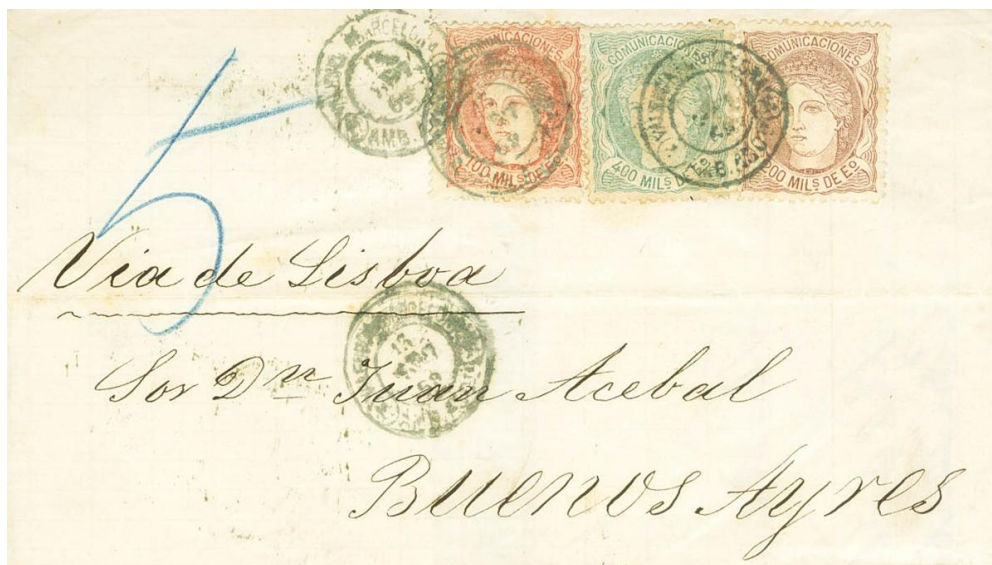 COMUNICACIONES
100 MILS DE Eº
COMUNICACIONES
400 MILS DE
COMUNICACIONES
200 MILS DE Eº
BARCELONA
5
Via de Lisboa
Sor Dⁿ Juan Acebal
Buenos Ayres